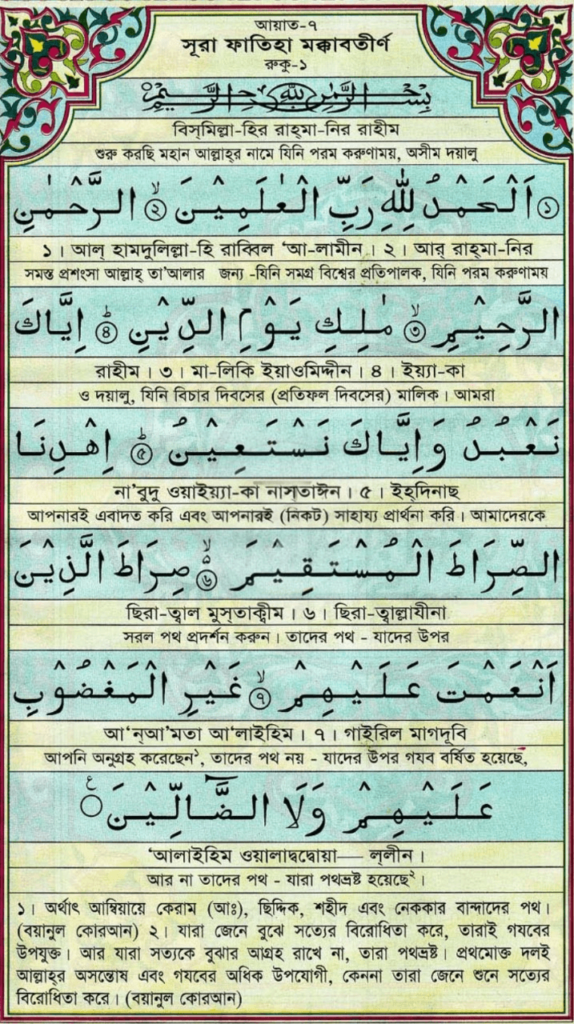 আয়াত-৭
সূরা ফাতিহা মক্কাবতীর্ণ
রুকু-১
بِسْمِ اللهِ الرَّحْمٰنِ الرَّحِيْمِ
বিস্‌মিল্লা-হির রাহ্‌মা-নির রাহীম
শুরু করছি মহান আল্লাহ্‌র নামে যিনি পরম করুণাময়, অসীম দয়ালু
① اَلْحَمْدُ لِلّٰهِ رَبِّ الْعٰلَمِيْنَ ۙ② الرَّحْمٰنِ
১। আল্ হামদুলিল্লা-হি রাব্বিল ‘আ-লামীন। ২। আর্ রাহ্‌মা-নির
সমস্ত প্রশংসা আল্লাহ্ তা'আলার জন্য -যিনি সমগ্র বিশ্বের প্রতিপালক, যিনি পরম করুণাময়
الرَّحِيْمِ ۙ③ مٰلِكِ يَوْمِ الدِّيْنِ ؕ④ اِيَّاكَ
রাহীম। ৩। মা-লিকি ইয়াওমিদ্দীন। ৪। ইয়্যা-কা
ও দয়ালু, যিনি বিচার দিবসের (প্রতিফল দিবসের) মালিক। আমরা
نَعْبُدُ وَاِيَّاكَ نَسْتَعِيْنُ ؕ⑤ اِهْدِنَا
না'বুদু ওয়াইয়্যা-কা নাস্‌তাঈন। ৫। ইহ্‌দিনাছ
আপনারই এবাদত করি এবং আপনারই (নিকট) সাহায্য প্রার্থনা করি। আমাদেরকে
الصِّرَاطَ الْمُسْتَقِيْمَ ۙ⑥ صِرَاطَ الَّذِيْنَ
ছিরা-ত্বাল মুস্‌তাক্বীম। ৬। ছিরা-ত্বাল্লাযীনা
সরল পথ প্রদর্শন করুন। তাদের পথ - যাদের উপর
اَنْعَمْتَ عَلَيْهِمْ ۙ⑦ غَيْرِ الْمَغْضُوْبِ
আ'ন্‌আ'মতা আ'লাইহিম। ৭। গাইরিল মাগদূবি
আপনি অনুগ্রহ করেছেন¹, তাদের পথ নয় - যাদের উপর গযব বর্ষিত হয়েছে,
عَلَيْهِمْ وَلَا الضَّآلِّيْنَ ۝ع
‘আলাইহিম ওয়ালাদ্বদ্বোয়া— ল্‌লীন।
আর না তাদের পথ - যারা পথভ্রষ্ট হয়েছে²।
১। অর্থাৎ আম্বিয়ায়ে কেরাম (আঃ), ছিদ্দিক, শহীদ এবং নেককার বান্দাদের পথ।
(বয়ানুল কোরআন) ২। যারা জেনে বুঝে সত্যের বিরোধিতা করে, তারাই গযবের
উপযুক্ত। আর যারা সত্যকে বুঝার আগ্রহ রাখে না, তারা পথভ্রষ্ট। প্রথমোক্ত দলই
আল্লাহ্‌র অসন্তোষ এবং গযবের অধিক উপযোগী, কেননা তারা জেনে শুনে সত্যের
বিরোধিতা করে। (বয়ানুল কোরআন)